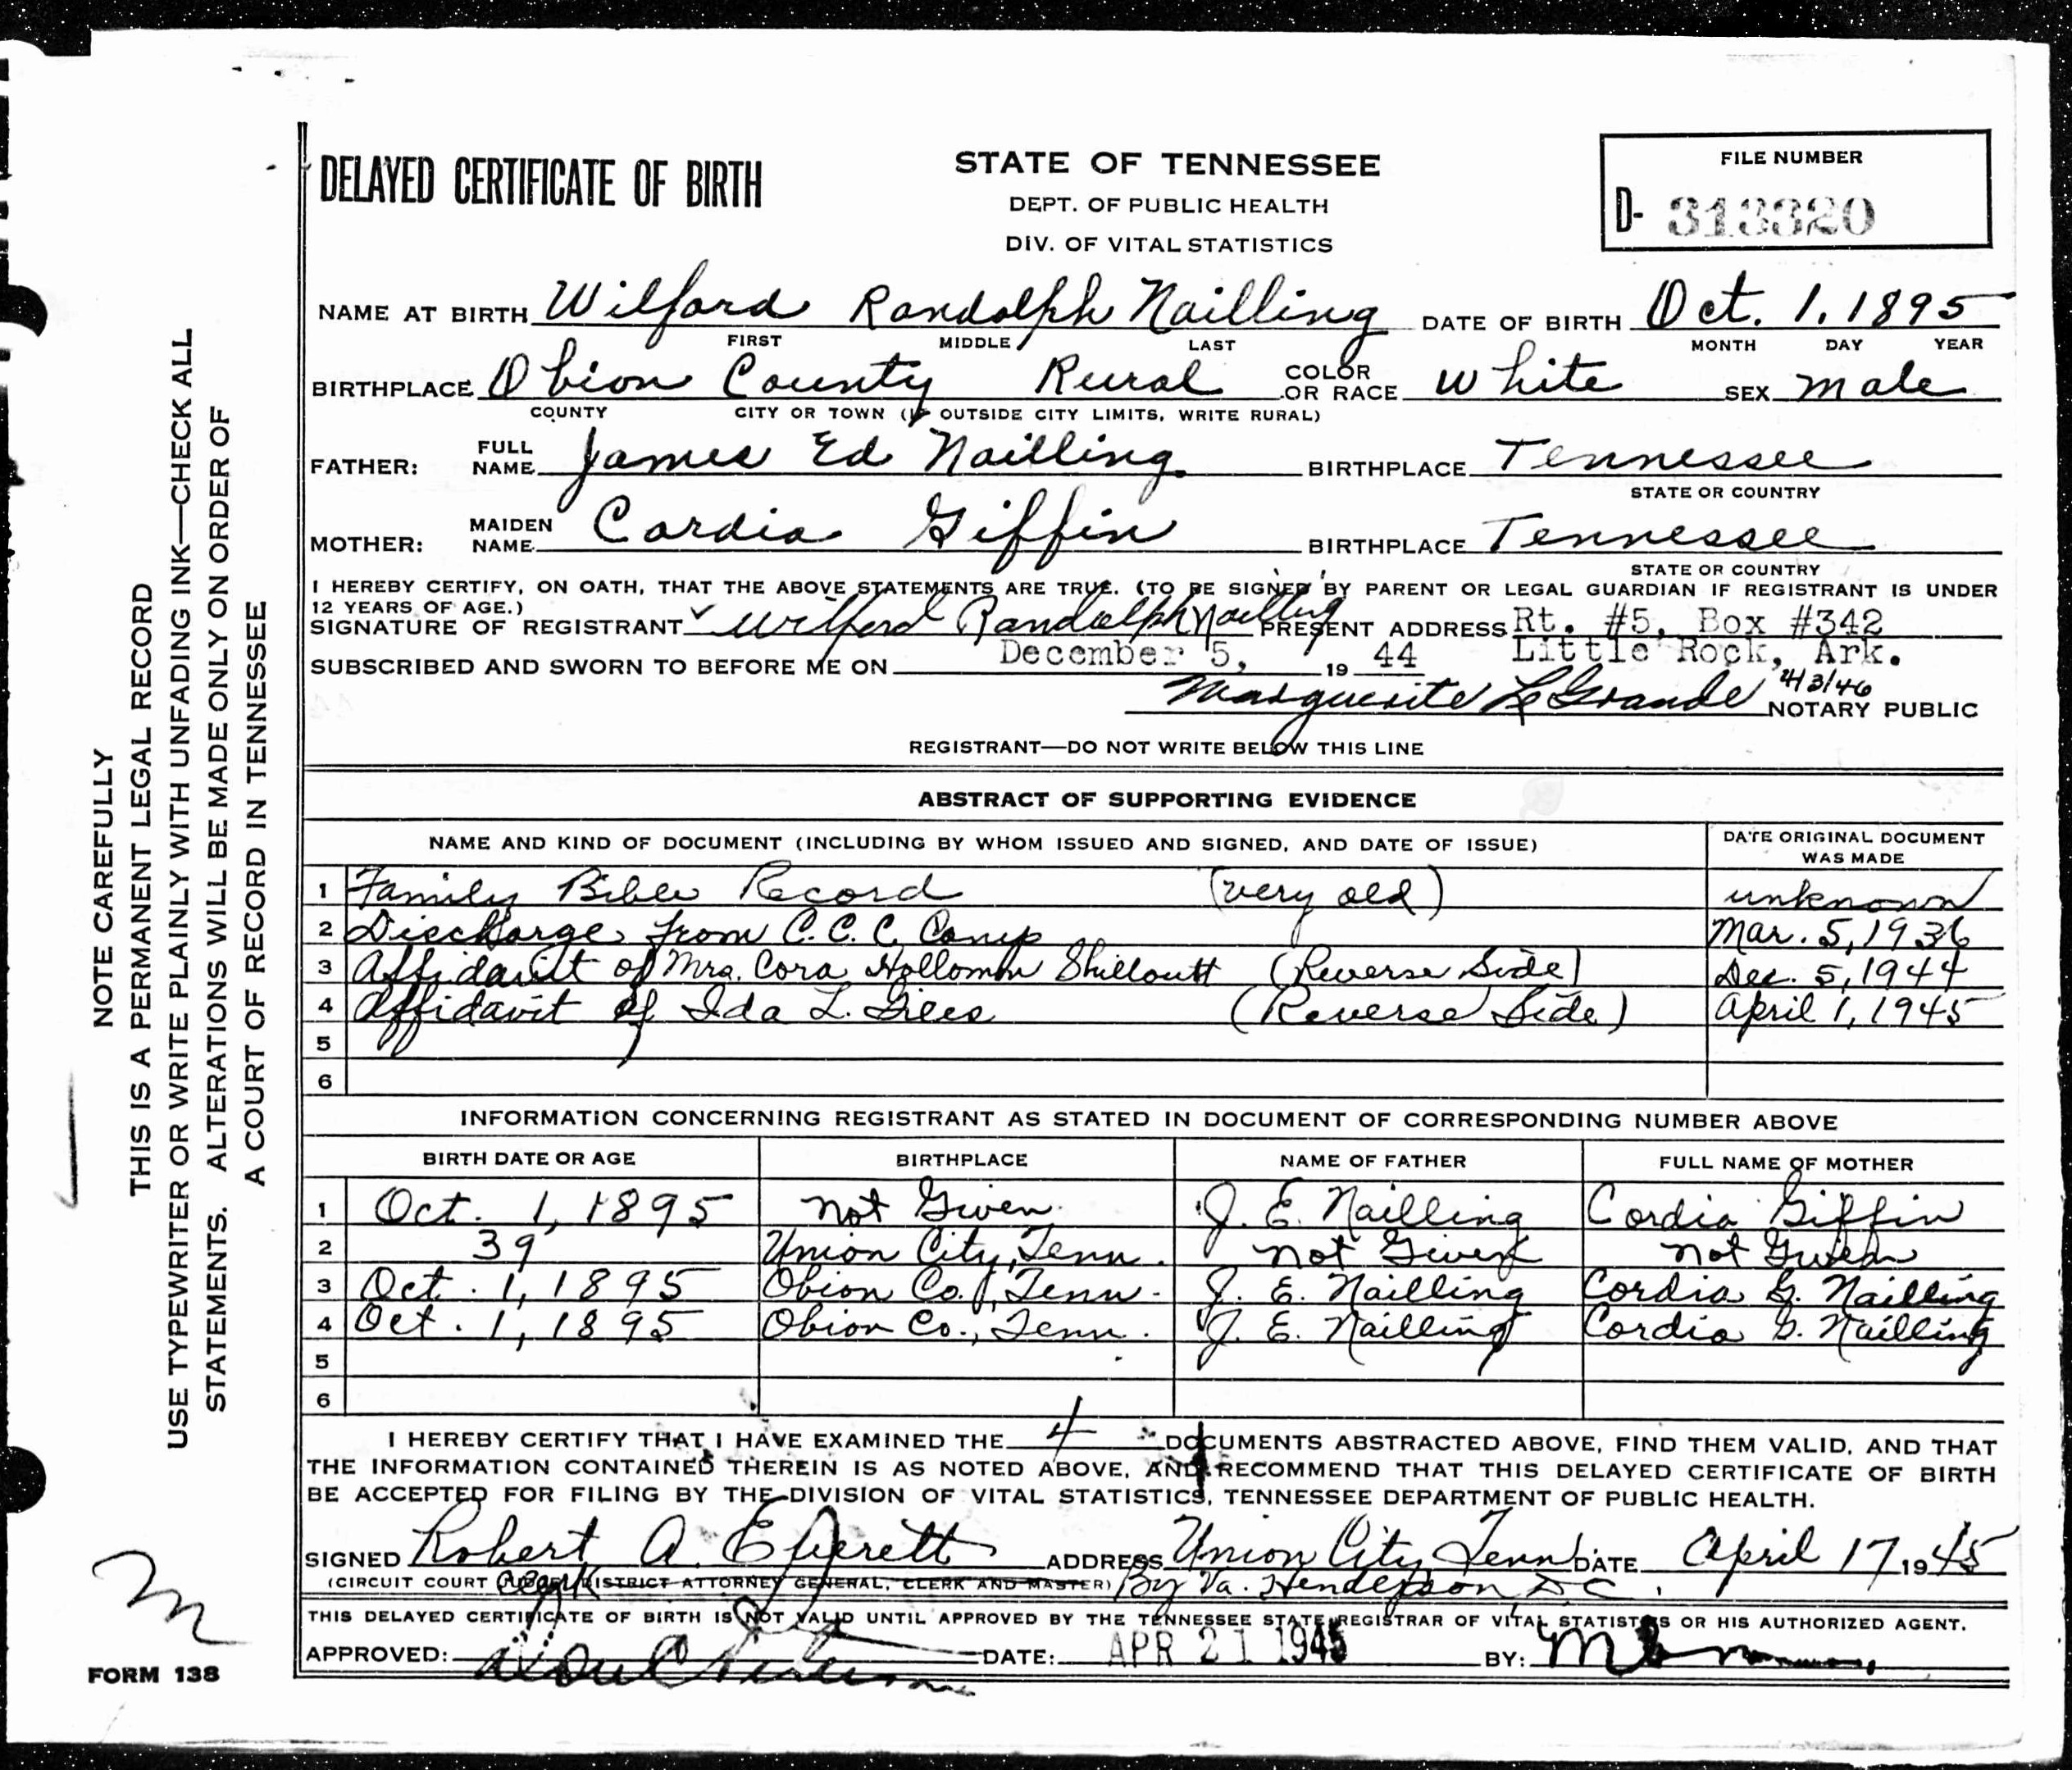 DELAYED CERTIFICATE OF BIRTH
STATE OF TENNESSEE
DEPT. OF PUBLIC HEALTH
DIV. OF VITAL STATISTICS
FILE NUMBER
D- 313320
NAME AT BIRTH Wilford Randolph Nailling DATE OF BIRTH Oct. 1, 1895
FIRST MIDDLE LAST MONTH DAY YEAR
BIRTHPLACE Obion County Rural COLOR OR RACE White SEX male
COUNTY CITY OR TOWN (IF OUTSIDE CITY LIMITS, WRITE RURAL)
FATHER: FULL NAME James Ed Nailling BIRTHPLACE Tennessee
STATE OR COUNTRY
MOTHER: MAIDEN NAME Cordia Giffin BIRTHPLACE Tennessee
STATE OR COUNTRY
I HEREBY CERTIFY, ON OATH, THAT THE ABOVE STATEMENTS ARE TRUE. (TO BE SIGNED BY PARENT OR LEGAL GUARDIAN IF REGISTRANT IS UNDER
12 YEARS OF AGE.)
SIGNATURE OF REGISTRANT Wilford Randolph Nailling PRESENT ADDRESS Rt. #5, Box #342
SUBSCRIBED AND SWORN TO BEFORE ME ON December 5, 19 44 Little Rock, Ark.
Marguerite LeGrande 4/3/46 NOTARY PUBLIC
REGISTRANT—DO NOT WRITE BELOW THIS LINE
ABSTRACT OF SUPPORTING EVIDENCE
NAME AND KIND OF DOCUMENT (INCLUDING BY WHOM ISSUED AND SIGNED, AND DATE OF ISSUE) DATE ORIGINAL DOCUMENT WAS MADE
1 Family Bible Record (very old) unknown
2 Discharge from C.C.C. Camp Mar. 5, 1936
3 Affidavit of Mrs. Cora (Reverse Side) Dec. 5, 1944
4 Affidavit of Ida L. (Reverse Side) April 1, 1945
5
6
INFORMATION CONCERNING REGISTRANT AS STATED IN DOCUMENT OF CORRESPONDING NUMBER ABOVE
BIRTH DATE OR AGE BIRTHPLACE NAME OF FATHER FULL NAME OF MOTHER
1 Oct. 1, 1895 not Given J. E. Nailling Cordia Giffin
2 39 Union City, Tenn. not Given not Given
3 Oct. 1, 1895 Obion Co., Tenn. J. E. Nailling Cordia G. Nailling
4 Oct. 1, 1895 Obion Co., Tenn. J. E. Nailling Cordia G. Nailling
5
6
I HEREBY CERTIFY THAT I HAVE EXAMINED THE 4 DOCUMENTS ABSTRACTED ABOVE, FIND THEM VALID, AND THAT
THE INFORMATION CONTAINED THEREIN IS AS NOTED ABOVE, AND RECOMMEND THAT THIS DELAYED CERTIFICATE OF BIRTH
BE ACCEPTED FOR FILING BY THE DIVISION OF VITAL STATISTICS, TENNESSEE DEPARTMENT OF PUBLIC HEALTH.
SIGNED Robert A. Everett ADDRESS Union City Tenn DATE April 17 1945
(CIRCUIT COURT Clerk DISTRICT ATTORNEY GENERAL, CLERK AND MASTER) By Va. Henderson D.C.
THIS DELAYED CERTIFICATE OF BIRTH IS NOT VALID UNTIL APPROVED BY THE TENNESSEE STATE REGISTRAR OF VITAL STATISTICS OR HIS AUTHORIZED AGENT.
APPROVED: DATE: APR 21 1945 BY:
NOTE CAREFULLY
THIS IS A PERMANENT LEGAL RECORD
USE TYPEWRITER OR WRITE PLAINLY WITH UNFADING INK—CHECK ALL
STATEMENTS. ALTERATIONS WILL BE MADE ONLY ON ORDER OF
A COURT OF RECORD IN TENNESSEE
m
FORM 138